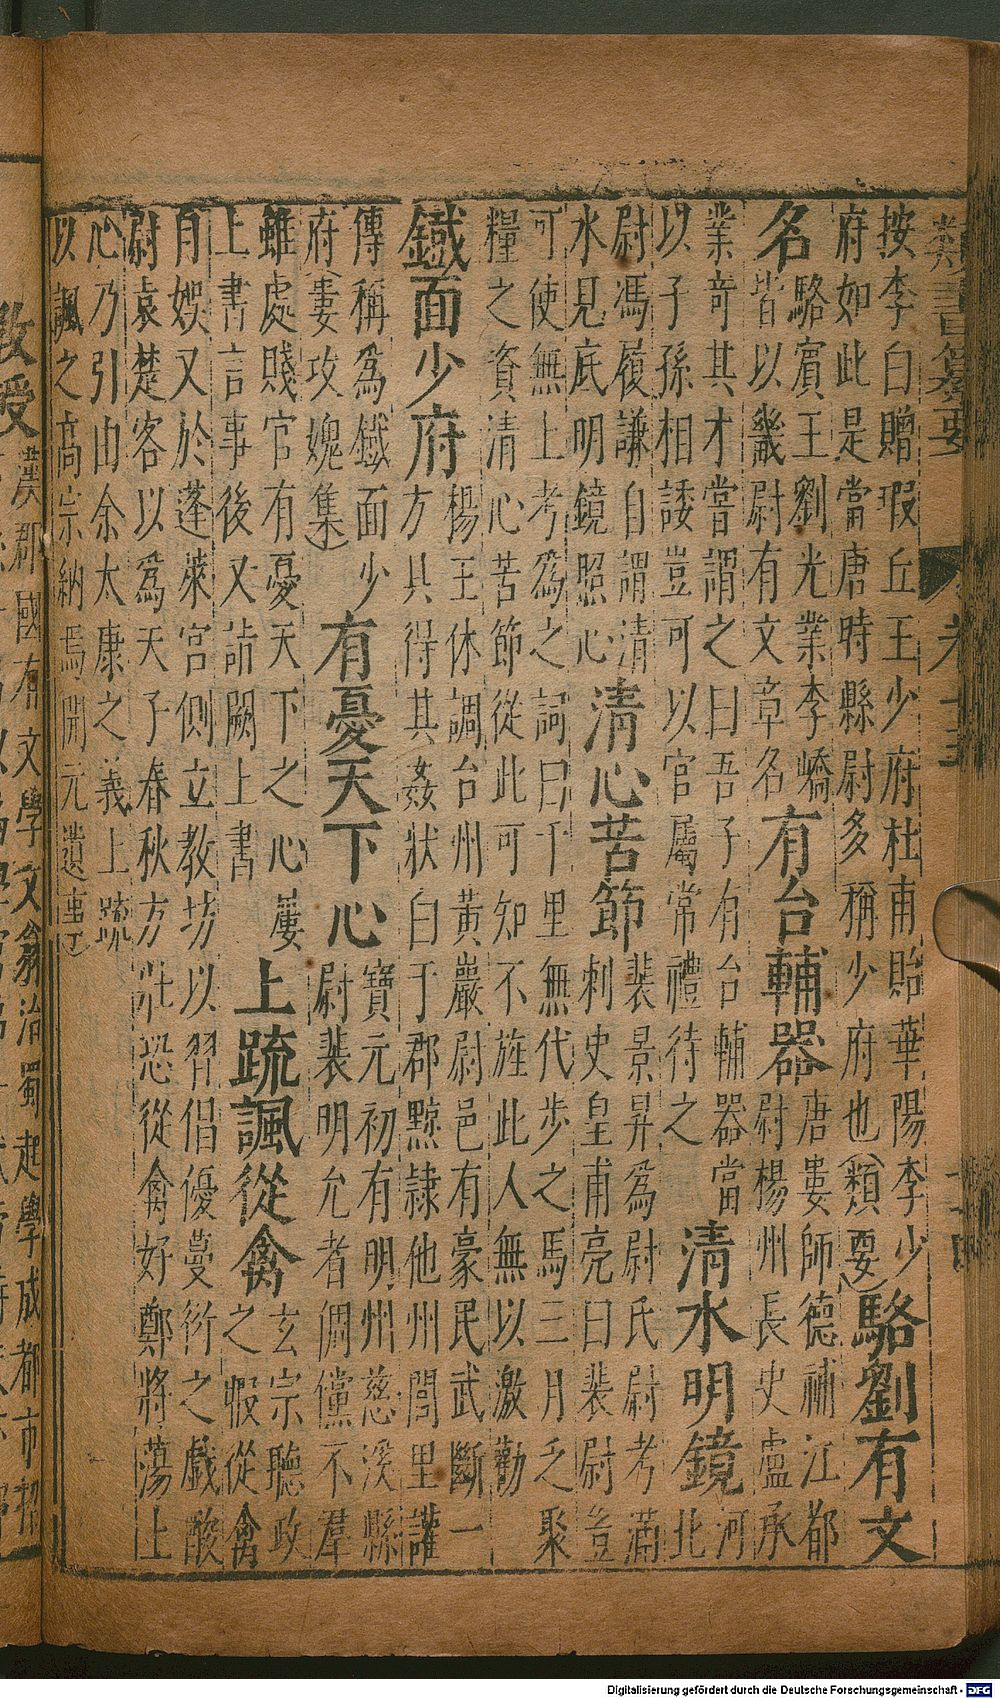 類書纂要 卷十五
按李白贈瑕丘王少府杜甫貽華陽李少
府如此是當唐時縣尉多稱少府也(類要)
駱劉有文
名
駱賓王劉光業李嶠
皆以畿尉有文章名
有台輔器
唐婁師德補江都
尉楊州長史盧承
業奇其才嘗謂之曰吾子有台輔器當
以子孫相諉豈可以官屬常禮待之
清水明鏡
河
北
尉馮履謙自謂清
水見底明鏡照心
清心苦節
裴景昇為尉氏尉考滿
刺史皇甫亮曰裴尉豈
可使無上考為之詞曰千里無代步之馬三月乏聚
糧之資清心苦節從此可知不旌此人無以激勸
鐵面少府
楊王休調台州黃巖尉邑有豪民武斷一
方具得其姦狀白于郡黥隷他州閭里讙
傳稱為鐵面少
府(婁攻媿集)
有憂天下心
寶元初有明州慈溪縣
尉裴明允者倜儻不羣
雖處賤官有憂天下之心屢
上書言事後又詣闕上書
上疏諷從禽
玄宗聽政
之暇從禽
自娛又於蓬萊宮側立教坊以習倡優蔓衍之戲酸
尉袁楚客以為天子春秋方壯恐從禽好鄭將蕩上
心乃引由余太康之義上疏
以諷之高宗納焉開元遺事)
教授
漢郡國有文學文翁治蜀起學成都市招
Digitalisierung gefördert durch die Deutsche Forschungsgemeinschaft - DFG